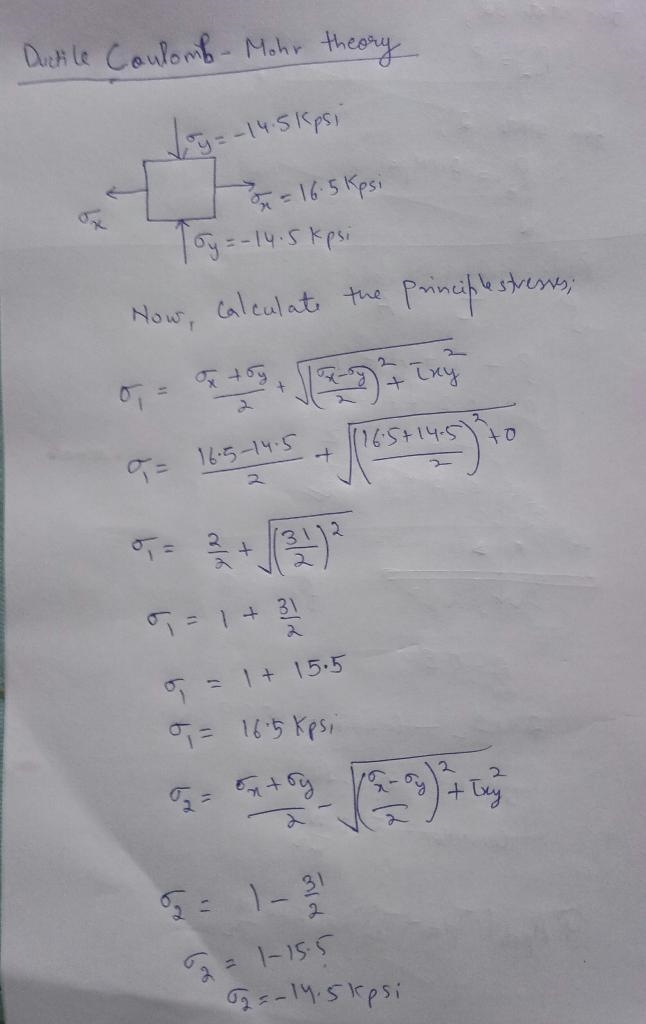 Ductile Coulomb - Mohr theory
σy = -14.5 Kpsi
σx = 16.5 Kpsi
σx
σy = -14.5 Kpsi
Now, Calculate the principle stresses;
σ1 = (σx + σy)/2 + √(((σx - σy)/2)² + τxy²)
σ1 = (16.5 - 14.5)/2 + √(((16.5 + 14.5)/2)² + 0)
σ1 = 2/2 + √((31/2)²)
σ1 = 1 + 31/2
σ1 = 1 + 15.5
σ1 = 16.5 Kpsi
σ2 = (σx + σy)/2 - √(((σx - σy)/2)² + τxy²)
σ2 = 1 - 31/2
σ2 = 1 - 15.5
σ2 = -14.5 Kpsi